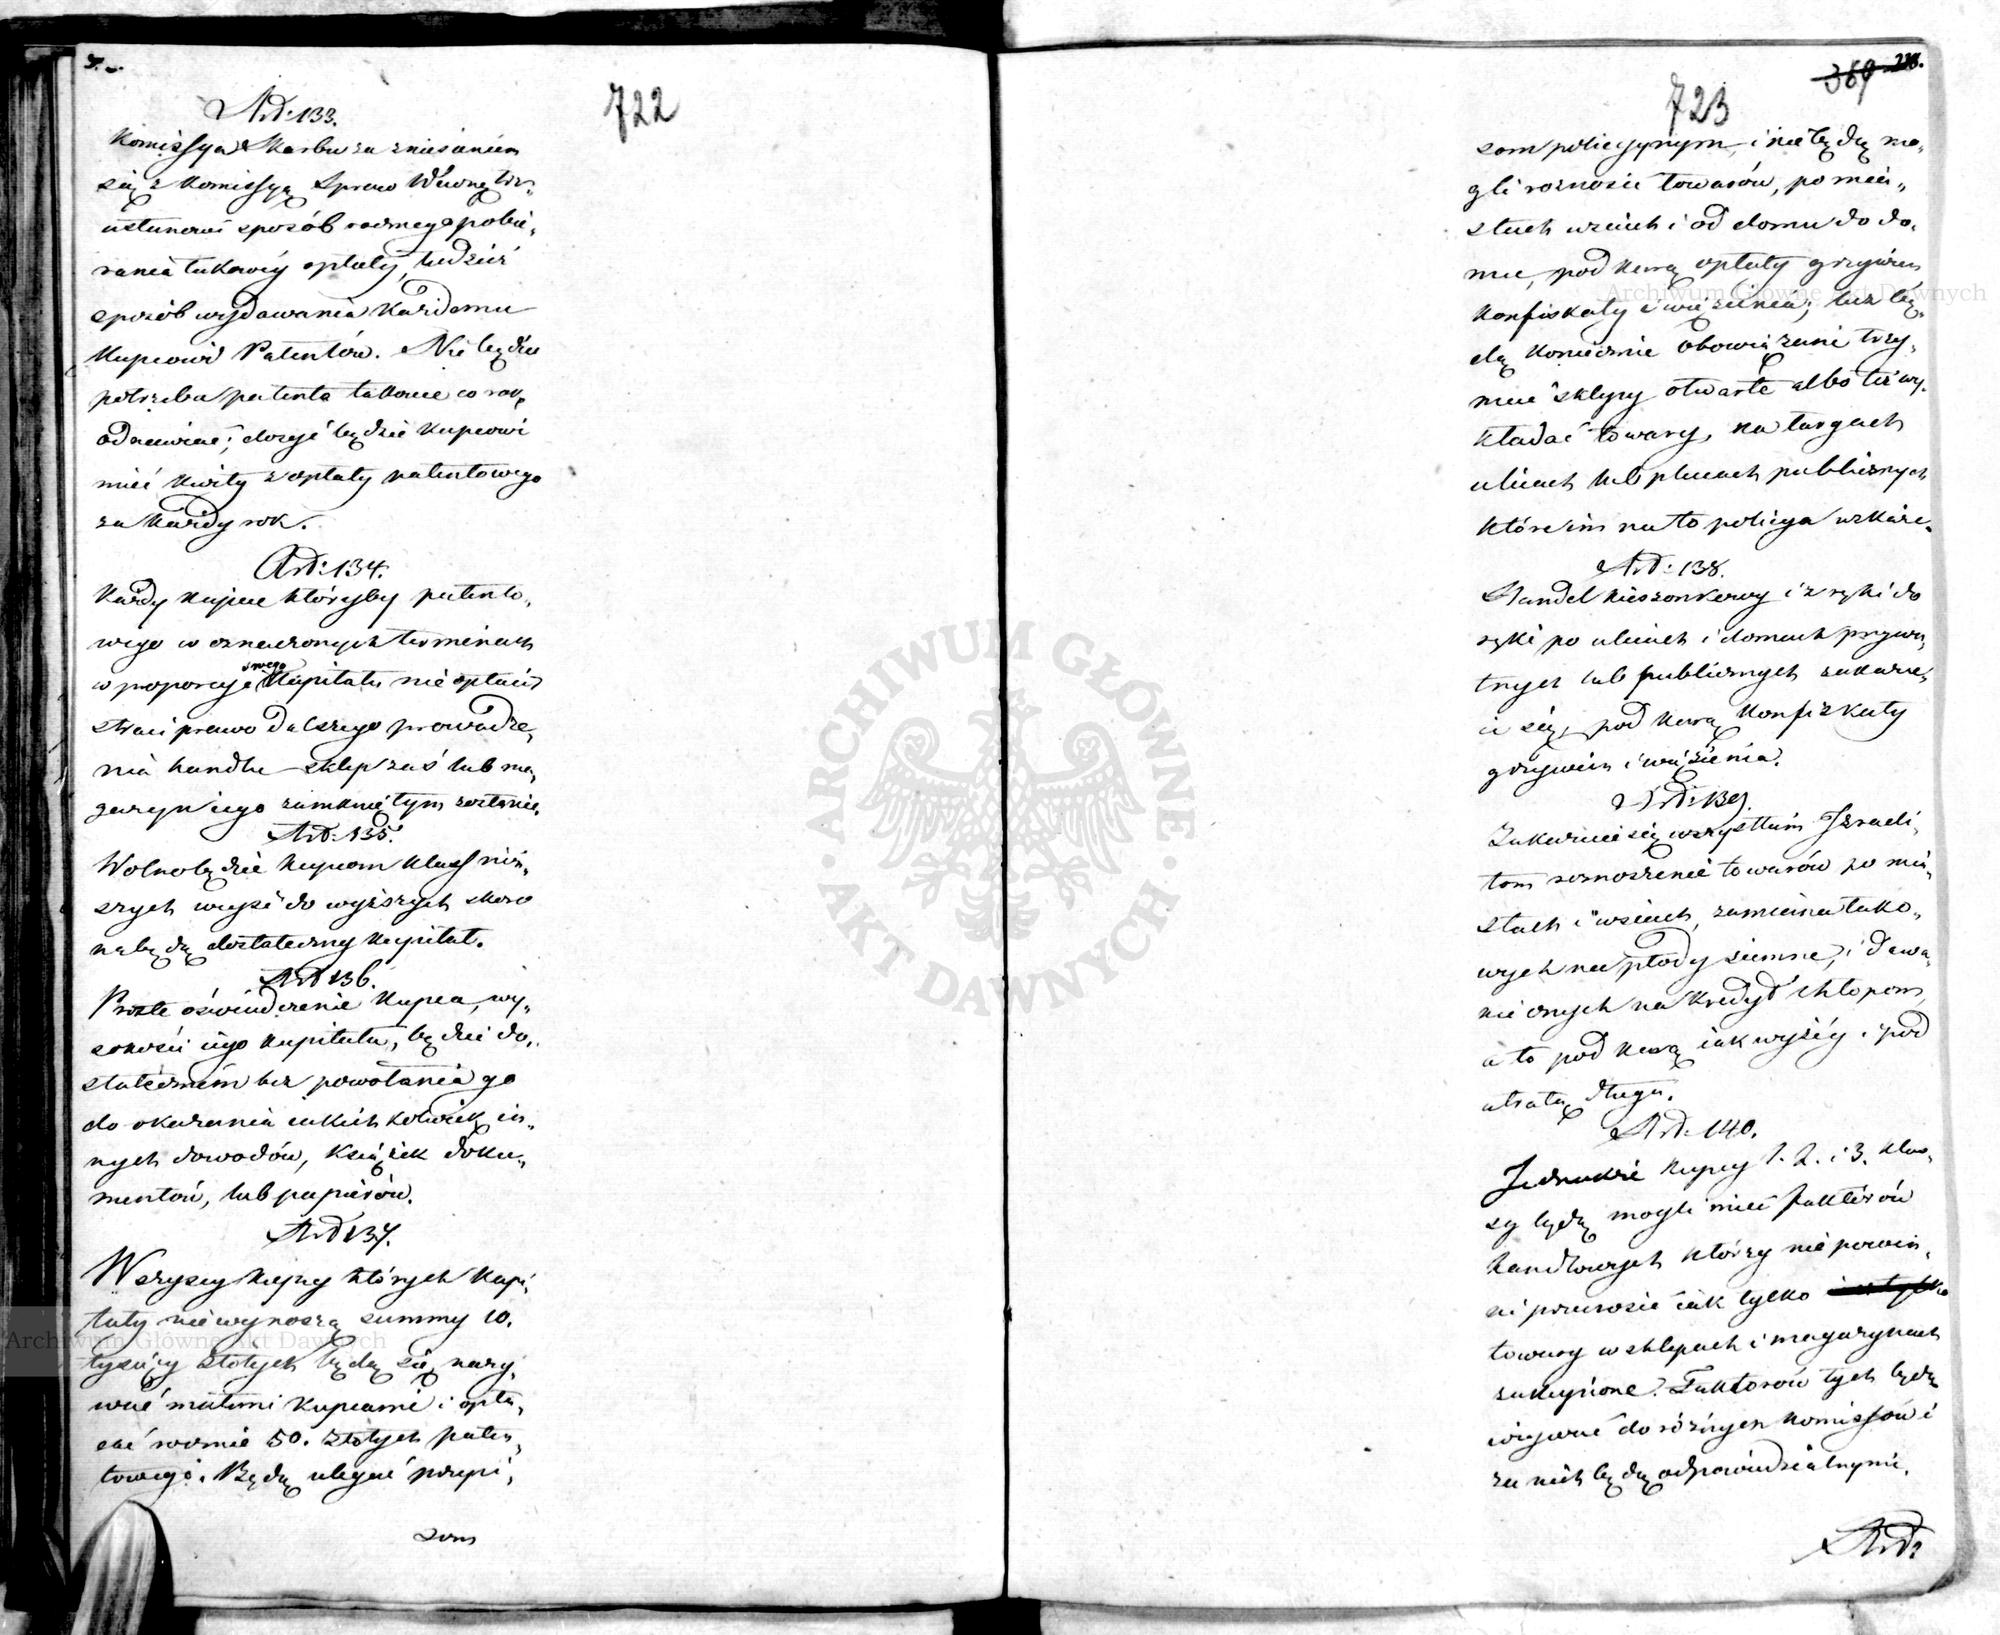 722
Art: 133.
Komissya Skarbu za zniesieniem
się z Komissyą Spraw Wewnętrz„
ustanowi sposób rocznego pobie„
rania takowéy opłaty, tudzież
sposób wydawania każdemu
Kupcowi Patentów. Nie będzie
potrzeba patenta takowe co rok
odnawiać; dosyć będzie Kupcowi
mieć kwity z opłaty patentowego
za każdy rok.
Art: 134.
Każdy kupiec któryby patento„
wego w oznaczonych terminach
w proporcyi swego Kapitału nie opłacił
straci prawo dalszego prowadze„
nia handlu sklep zaś lub ma„
gazyn iego zamkniętym zostanie.
Art: 135.
Wolno będzie kupcom klass niż„
szych weyść do wyższych skoro
nabędą dostateczny kapitał.
Art 136.
Proste oświadczenie Kupca, wy„
sokości iego kapitału, będzie do„
statecznem bez powołania go
do okazania iakich kolwiek in„
nych dowodów, książek doku„
mentów, lub papierów.
Art 137.
Wszyscy kupcy których kapi„
tały nie wynoszą summy 10.
tysięcy złotych będą się nazy„
wać małemi kupcami i opła„
cać rocznie 50. złotych paten„
towego. Będą ulegać przepi„
som
723
369
som policyynym, i nie będą mo„
gli roznosić towarów, po mia„
stach wsiach i od domu do do„
mu, pod karą opłaty grzywien
konfiskaty i więzienia; lecz bę„
dą koniecznie obowiązani trzy„
mać sklepy otwarte albo też wy„
kładać towary, na targach
ulicach lub placach publicznych
które im na to policya wskaże.
Art: 138.
Handel kieszonkowy i z ręki do
ręki po ulicach i domach prywa„
tnych lub publicznych zakazu„
ie się, pod karą konfiskaty
grzywien i więzienia.
Art: 139.
Zakazuie się wszystkim Izraeli„
tom roznoszenie towarów po mia„
stach i wsiach, zamiana tako„
wych na płody ziemne, i dawa„
nie onych na kredyt chłopom,
a to pod karą iak wyżéy i pod
utratą długu.
Art: 140.
Jednakże kupcy 1. 2. i 3. klas„
sy będą mogli mieć faktorów
handlowych którzy nie powin„
ni przenosić iak tylko
towary w sklepach i magazynach
zakupione. Faktorów tych będą
używać do różnych komissów i
za nich będą odpowiedzialnymi.
Art:
ARCHIWUM GŁÓWNE AKT DAWNYCH
Archiwum Główne Akt Dawnych
Archiwum Główne Akt Dawnych